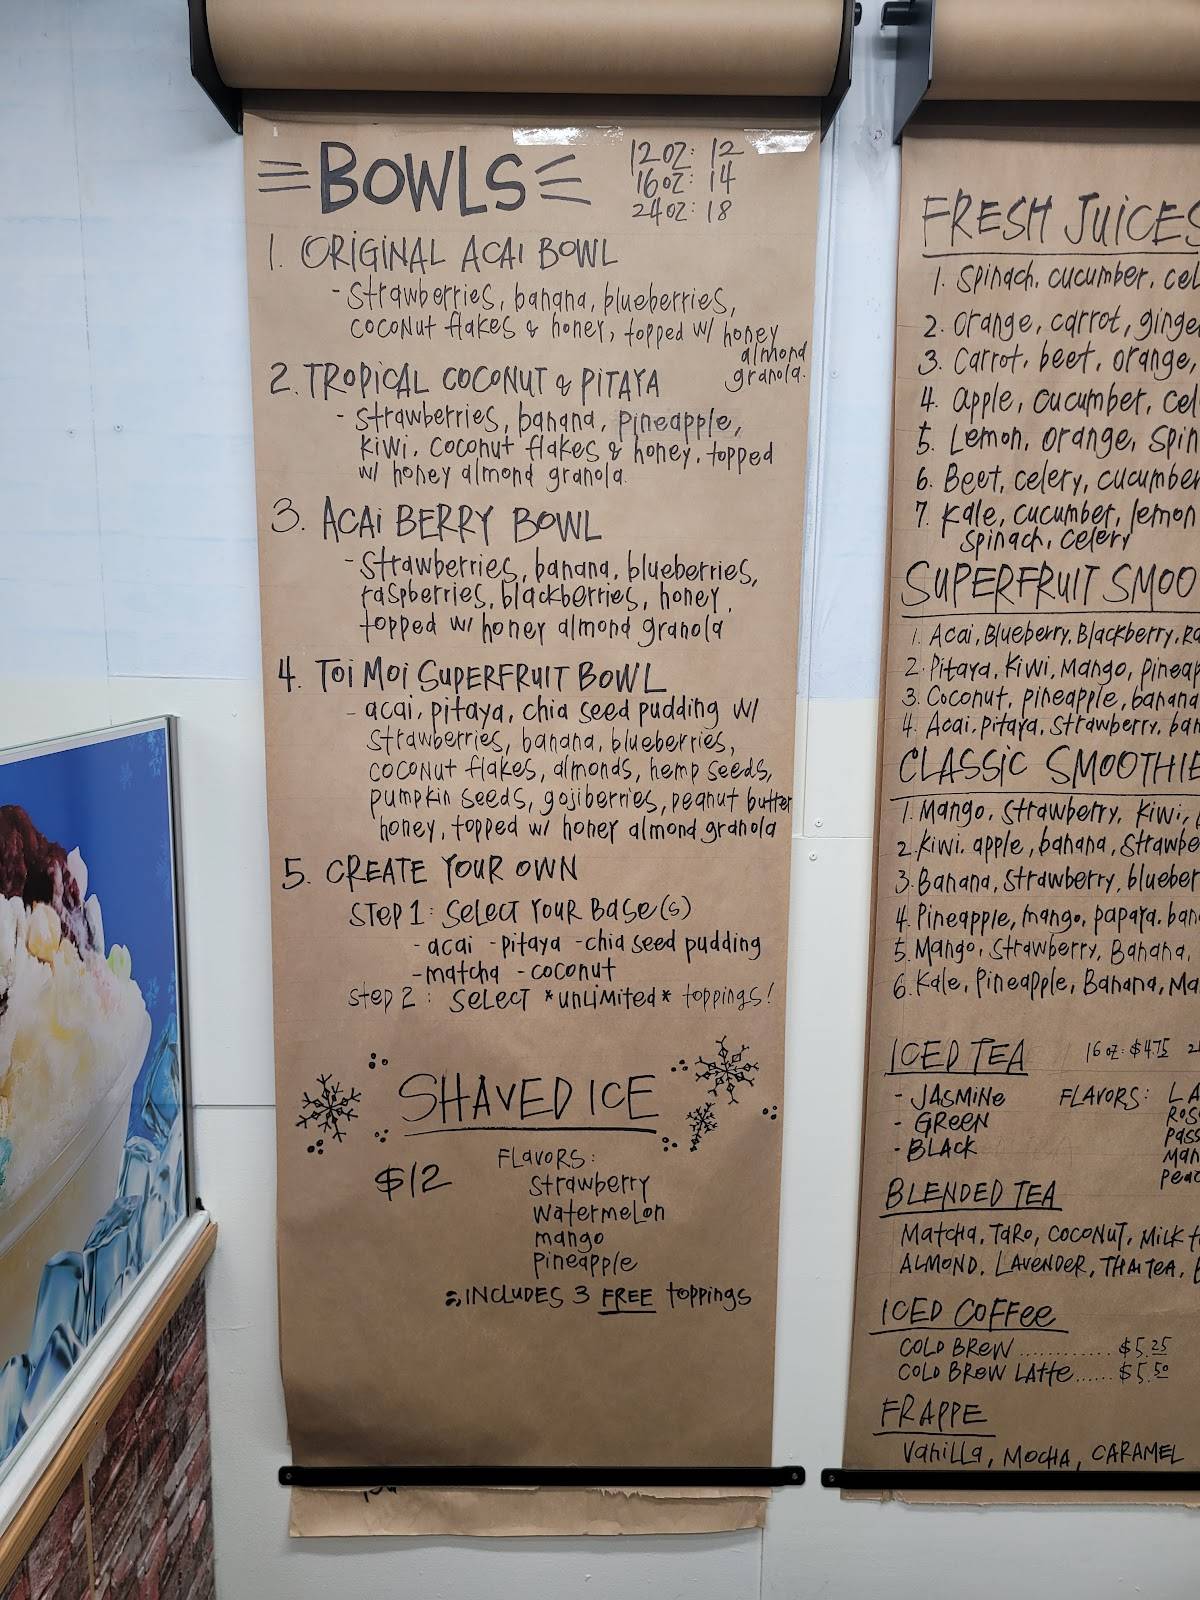 BOWLS
12 OZ: 12
16 OZ: 14
24 OZ: 18
1. ORIGINAL ACAI BOWL
- strawberries, banana, blueberries,
coconut flakes & honey, topped w/ honey
almond
granola.
2. TROPICAL COCONUT & PITAYA
- strawberries, banana, pineapple,
kiwi, coconut flakes & honey, topped
w/ honey almond granola.
3. ACAI BERRY BOWL
- strawberries, banana, blueberries,
raspberries, blackberries, honey,
topped w/ honey almond granola
4. TOI MOI SUPERFRUIT BOWL
- acai, pitaya, chia seed pudding w/
strawberries, banana, blueberries,
coconut flakes, almonds, hemp seeds,
pumpkin seeds, gojiberries, peanut butter
honey, topped w/ honey almond granola
5. CREATE YOUR OWN
STEP 1: SELECT YOUR BASE(S)
- acai - pitaya - chia seed pudding
- matcha - coconut
STEP 2: SELECT *UNLIMITED* toppings!
SHAVED ICE
$12
FLAVORS:
strawberry
watermelon
mango
pineapple
INCLUDES 3 FREE toppings
FRESH JUICES
1. Spinach, cucumber, cel
2. Orange, carrot, ginge
3. Carrot, beet, orange,
4. apple, cucumber, cel
5. Lemon, orange, spin
6. Beet, celery, cucumber
7. Kale, cucumber, lemon
spinach, celery
SUPERFRUIT SMOO
1. Acai, Blueberry, Blackberry, Ra
2. Pitaya, Kiwi, Mango, pineap
3. Coconut, pineapple, banana
4. Acai, Pitaya, Strawberry, ban
CLASSIC SMOOTHIE
1. Mango, Strawberry, Kiwi,
2. Kiwi, apple, banana, Strawbe
3. Banana, strawberry, blueber
4. Pineapple, mango, papaya, ban
5. Mango, Strawberry, Banana,
6. Kale, Pineapple, Banana, Ma
ICED TEA
16 oz: $4.75 2
- JASMINE
- GREEN
- BLACK
FLAVORS: LA
Ros
Pass
Man
peac
BLENDED TEA
MATCHA, TARO, COCONUT, MILK t
ALMOND, LAVENDER, THAI TEA,
ICED COFFEE
COLD BREW............ $5.25
COLD BREW LATTE...... $5.50
FRAPPE
VANILLA, MOCHA, CARAMEL